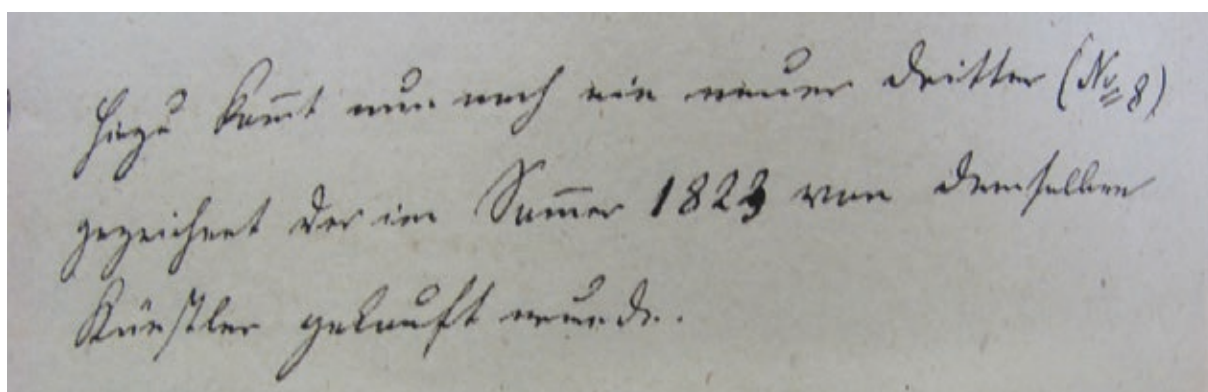 Hiezu kom̅t nun noch ein neuer dritter (No 8)
gezeichnet der im Som̅er 1823 von demselben
Künstler gekauft wurde.